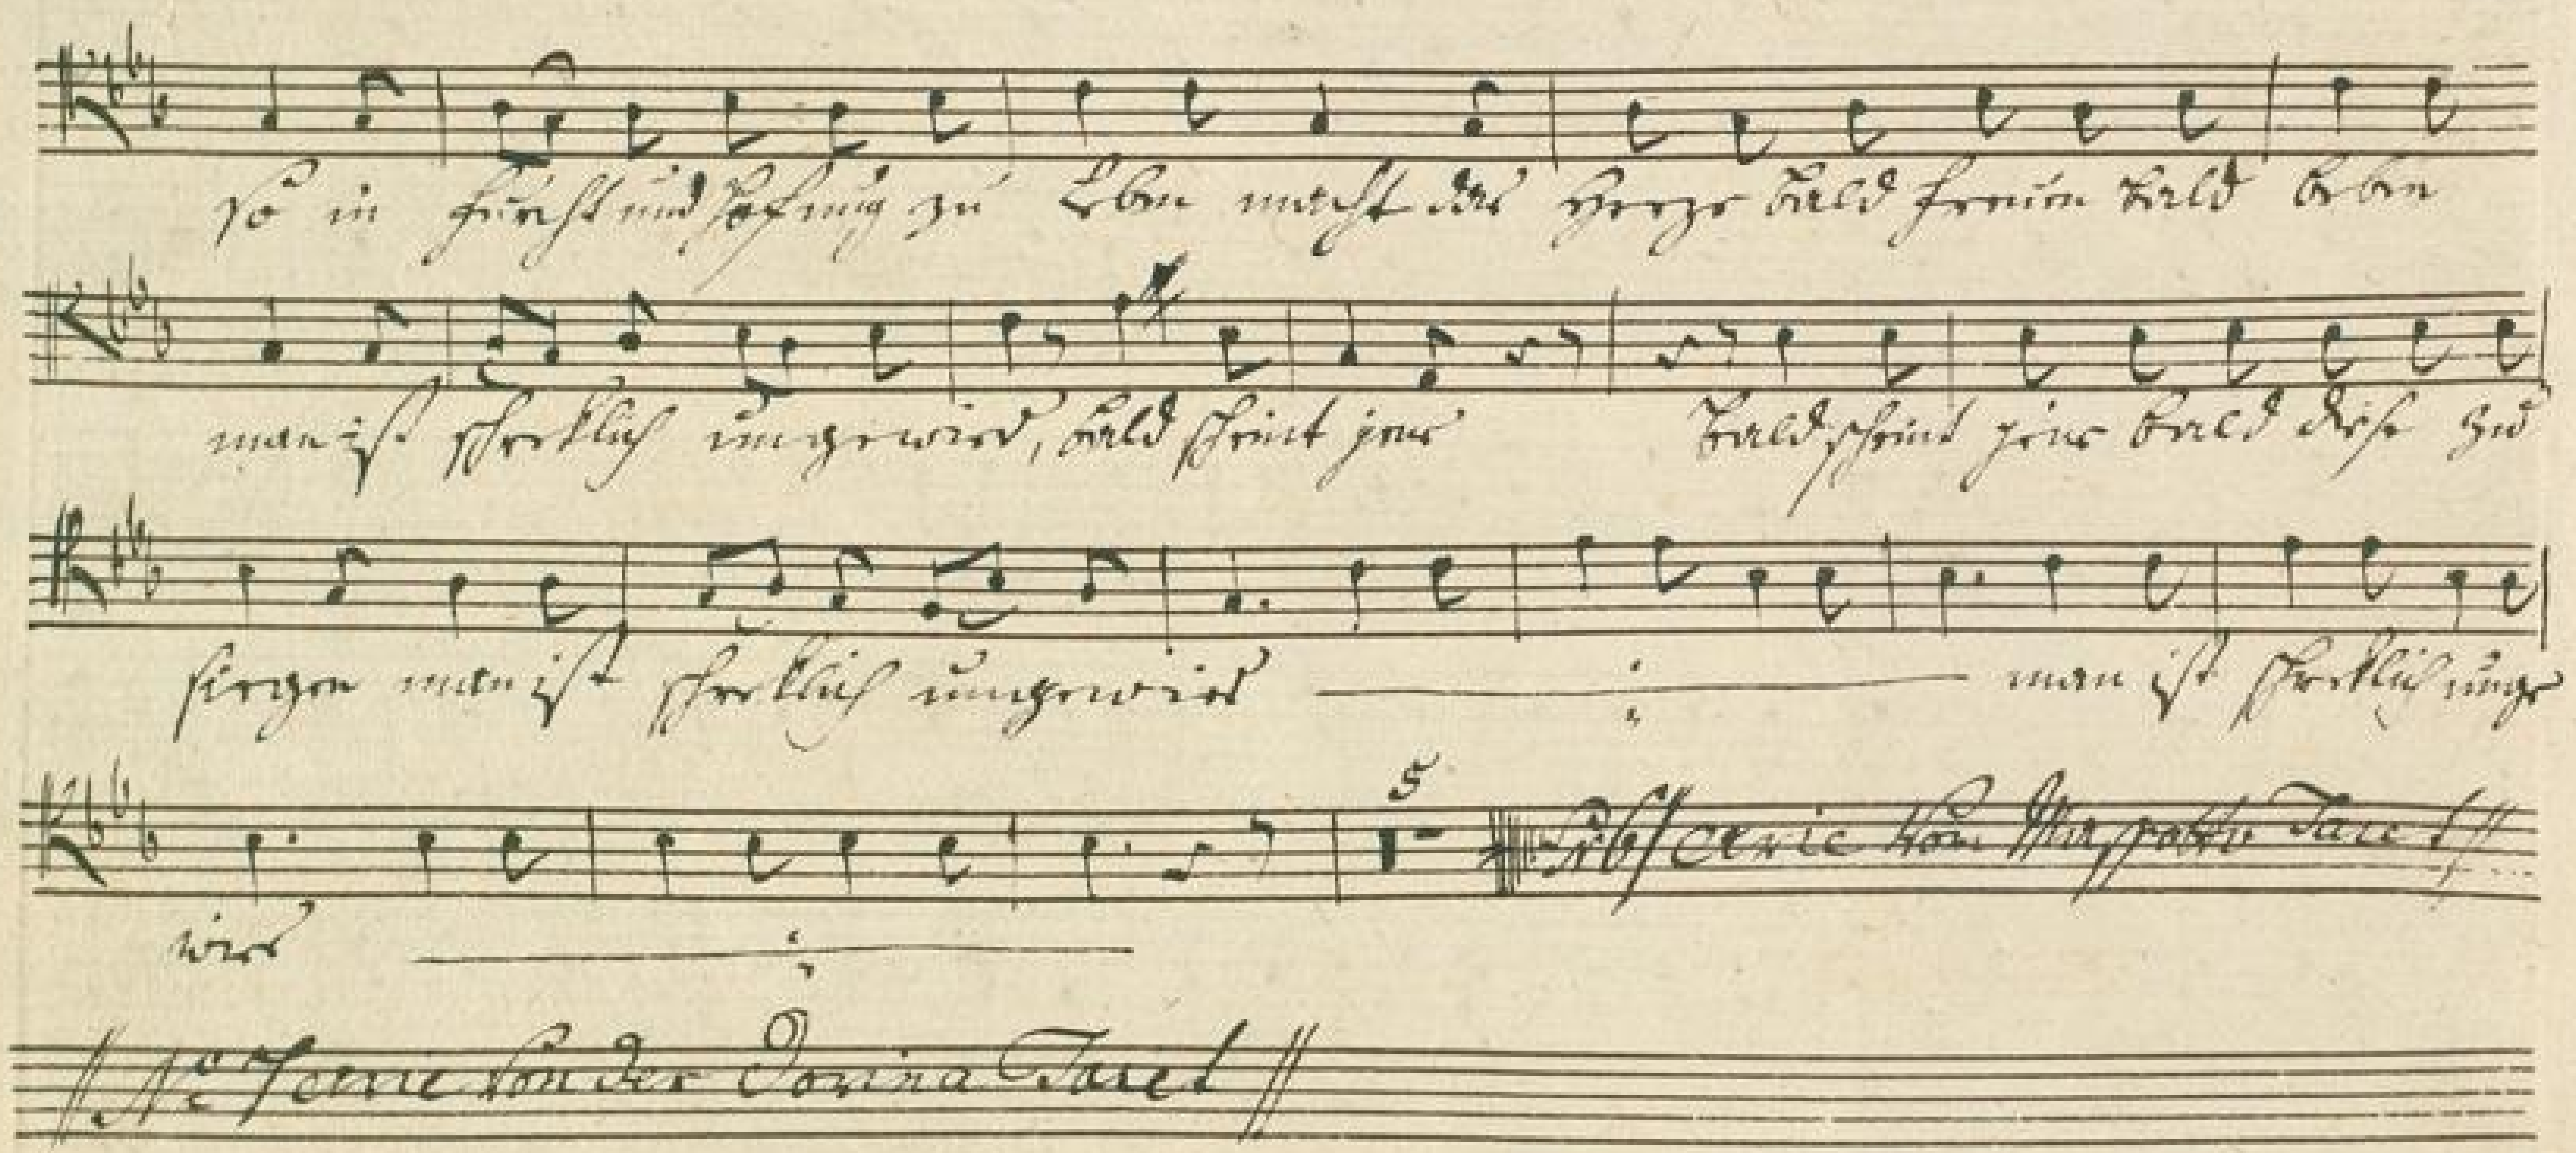 so in furcht und hofnung zu Leben macht das Herze bald freuen bald beben
man ist schreklich ungewis, bald scheint jene bald scheint jene bald diese zu
siegen man ist schreklich ungewis man ist schreklich unge
5
wis
aria von Tacet
No 7 aria von der Dorina Tacet